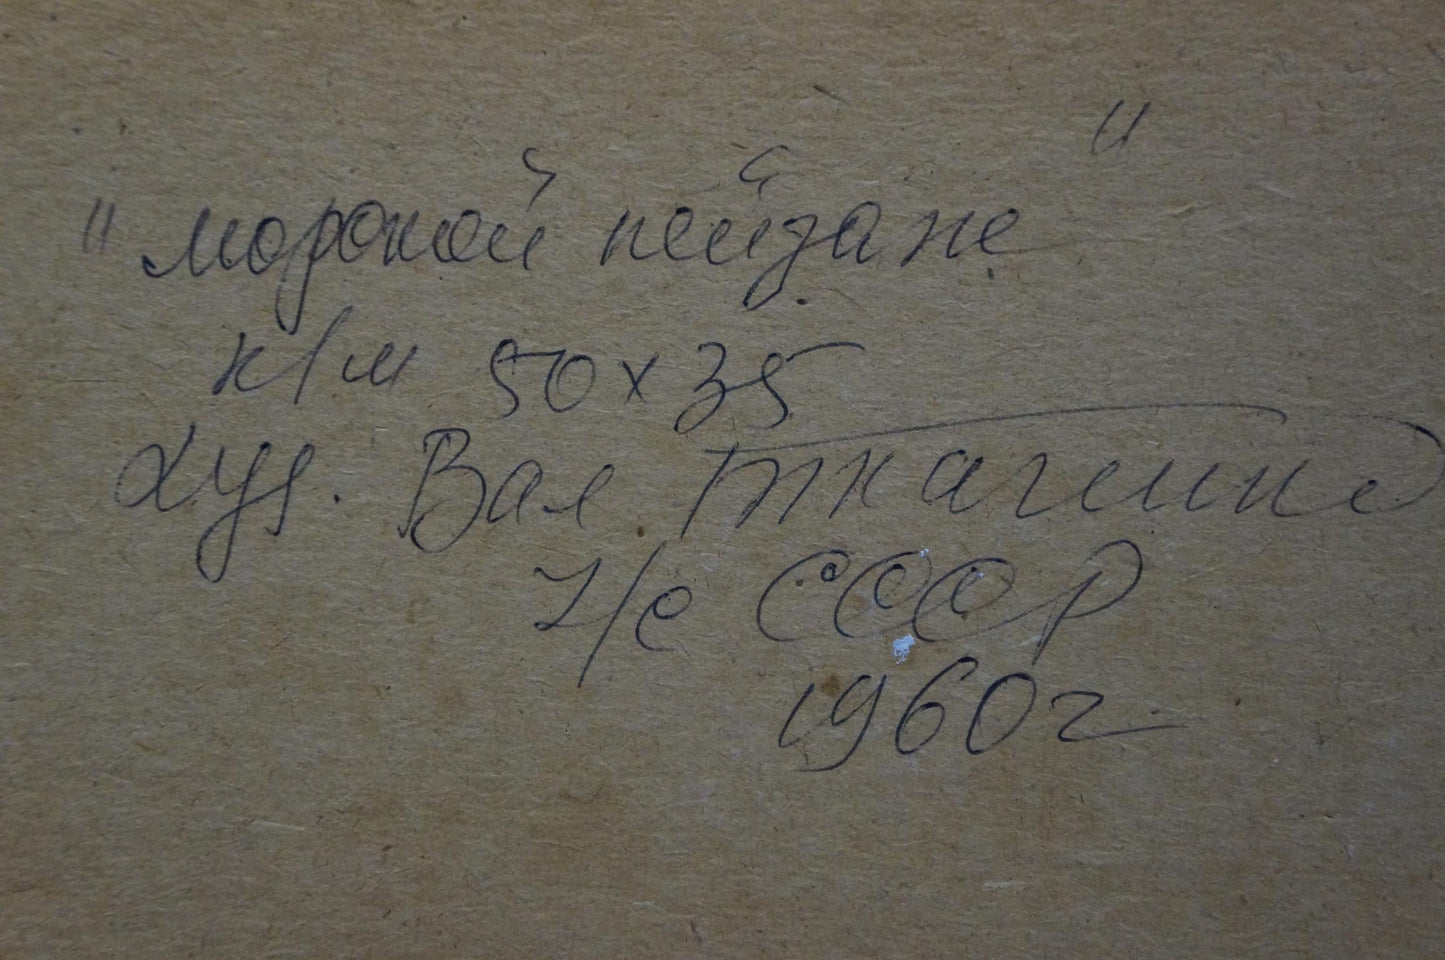 "Морской пейзаж"
к/м 50х35
худ. Вал Ткаченко
ч/с СССР
1960г